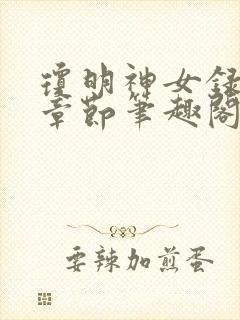 瓊明神女錄
章節筆趣閣
要辣加煎蛋